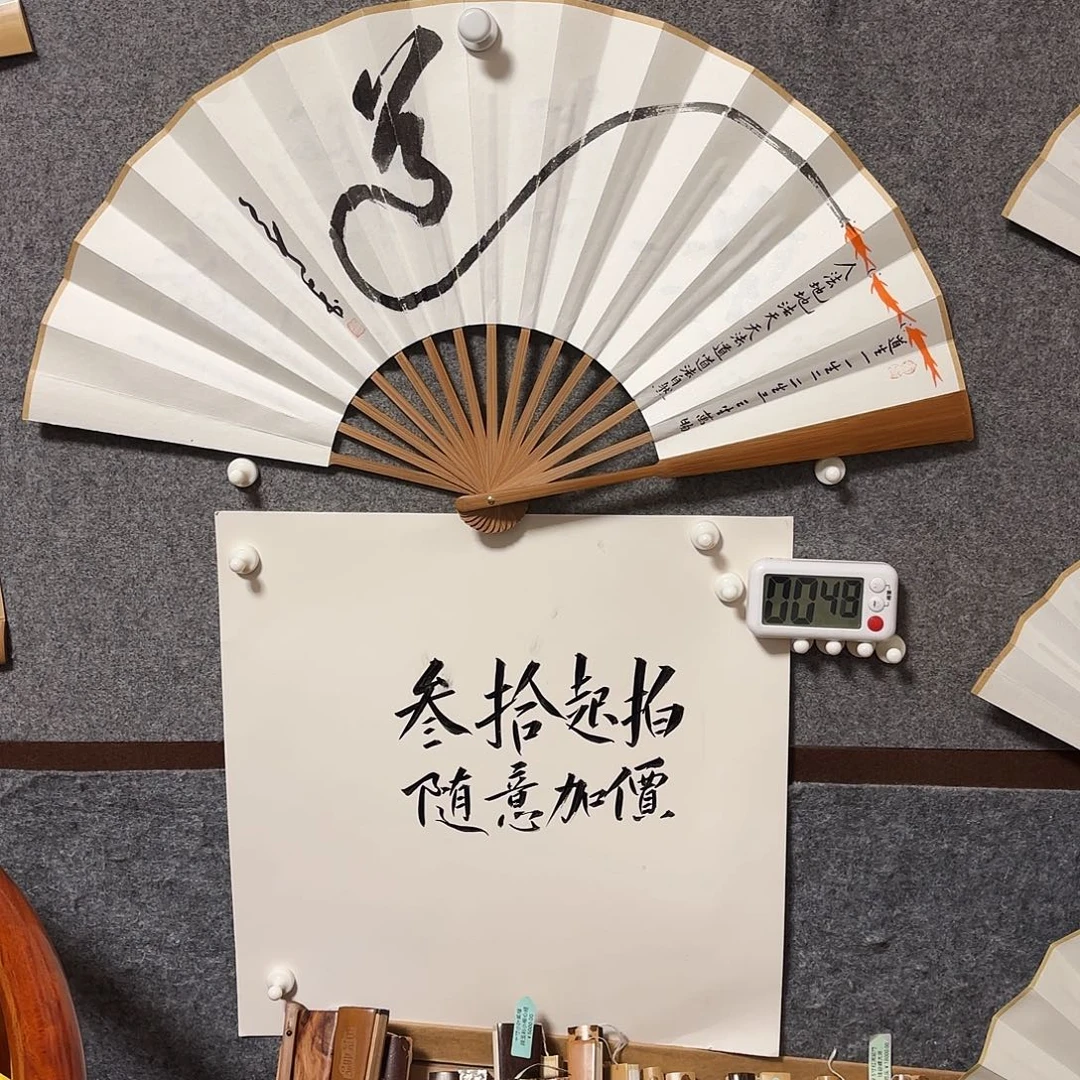 道
道生一一生二二生三三生萬物
人法地地法天天法道道法自然
00 48
叁拾起拍
随意加價